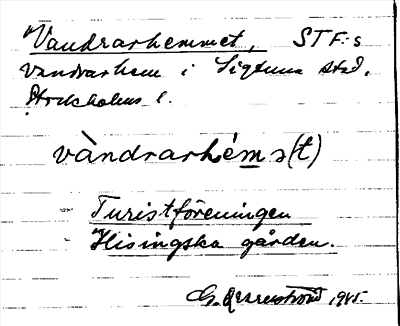 Vandrarhemmet, STF:s
vandrarhem i Sigtuna stad,
Stockholms l.
vàndrarhém ə(t)
Turistföreningen
Hisingska gården.
G. 1945.